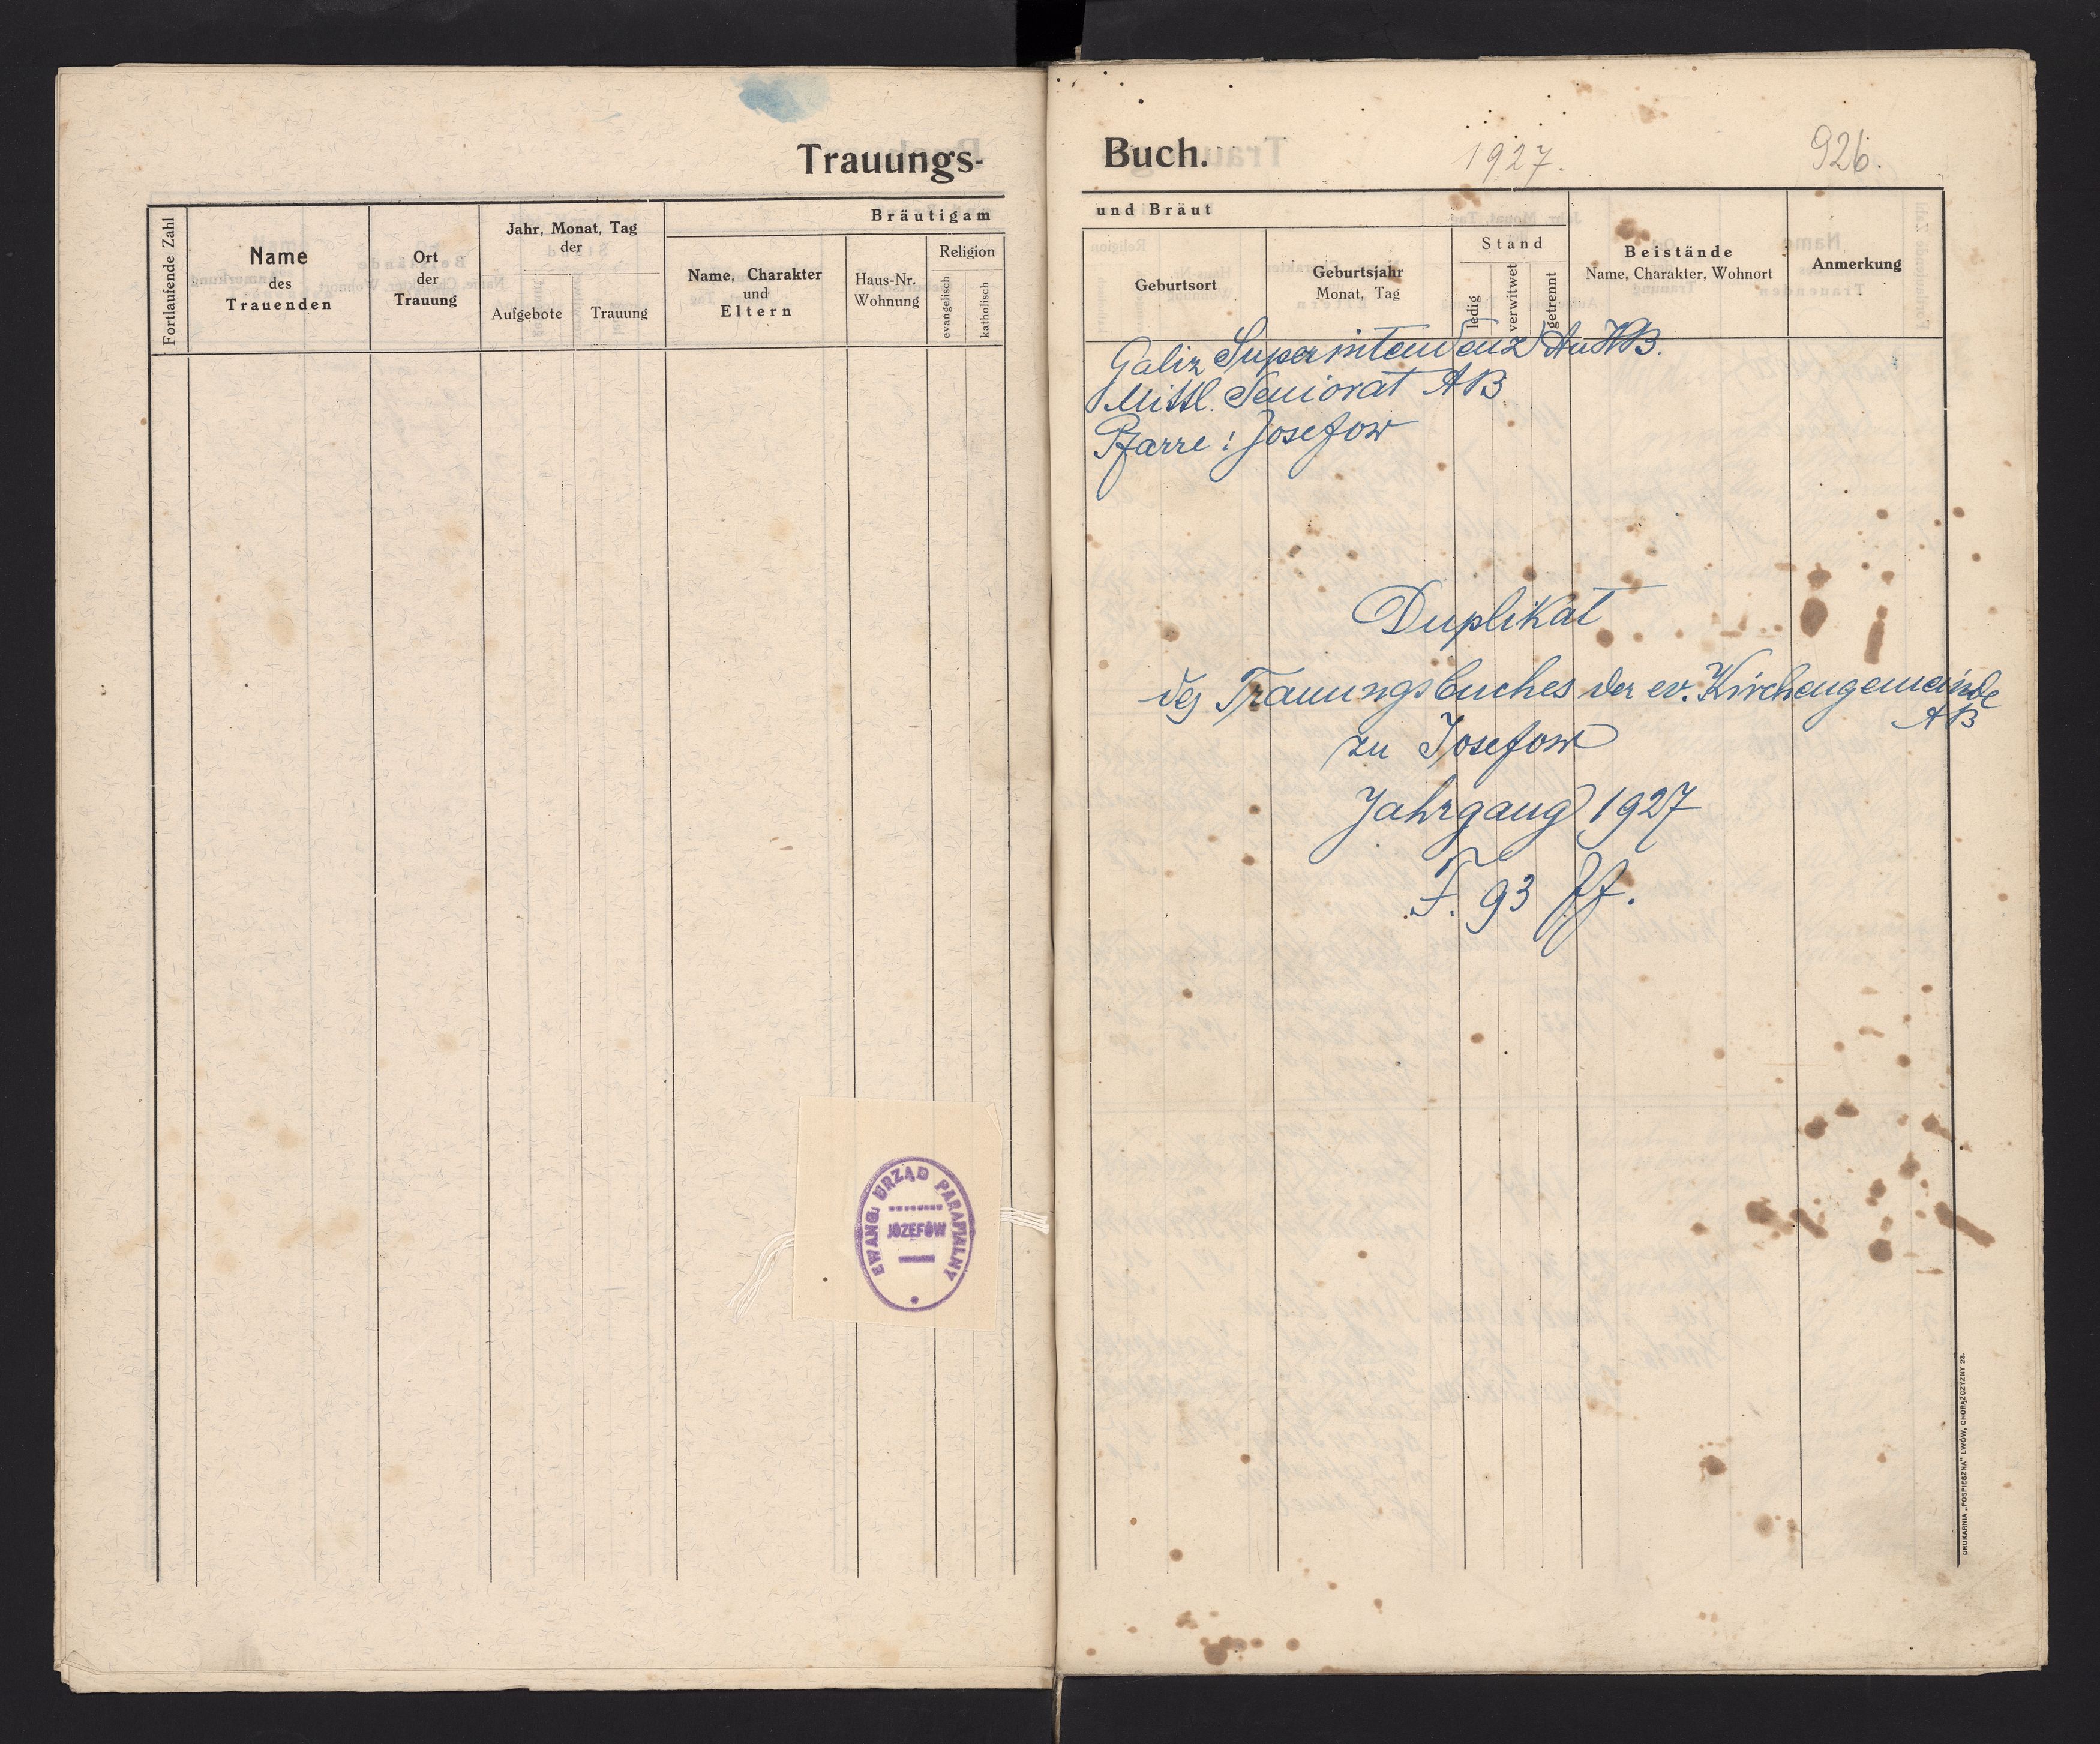 Trauungs-
Fortlaufende Zahl
Name
des
Trauenden
Ort
der
Trauung
Jahr, Monat, Tag
der
Aufgebote
Trauung
Bräutigam
Name, Charakter
und
Eltern
Haus-Nr.
Wohnung
Religion
evangelisch
katholisch
EWANG. URZĄD PARAFIALNY
JÓZEFÓW
Buch.
1927.
926.
und Braut
Geburtsort
Geburtsjahr
Monat, Tag
Stand
ledig
verwitwet
getrennt
Beistände
Name, Charakter, Wohnort
Anmerkung
Galiz Superintendenz AuHB.
Mittl. Seniorat AB
Pfarre: Josefow
Duplikat
des Trauungsbuches der ev. Kirchengemeinde
AB
zu Josefow
Jahrgang 1927
F. 93 ff.
DRUKARNIA „POSPIESZNA" LWÓW, CHORĄŻCZYZNY 23.